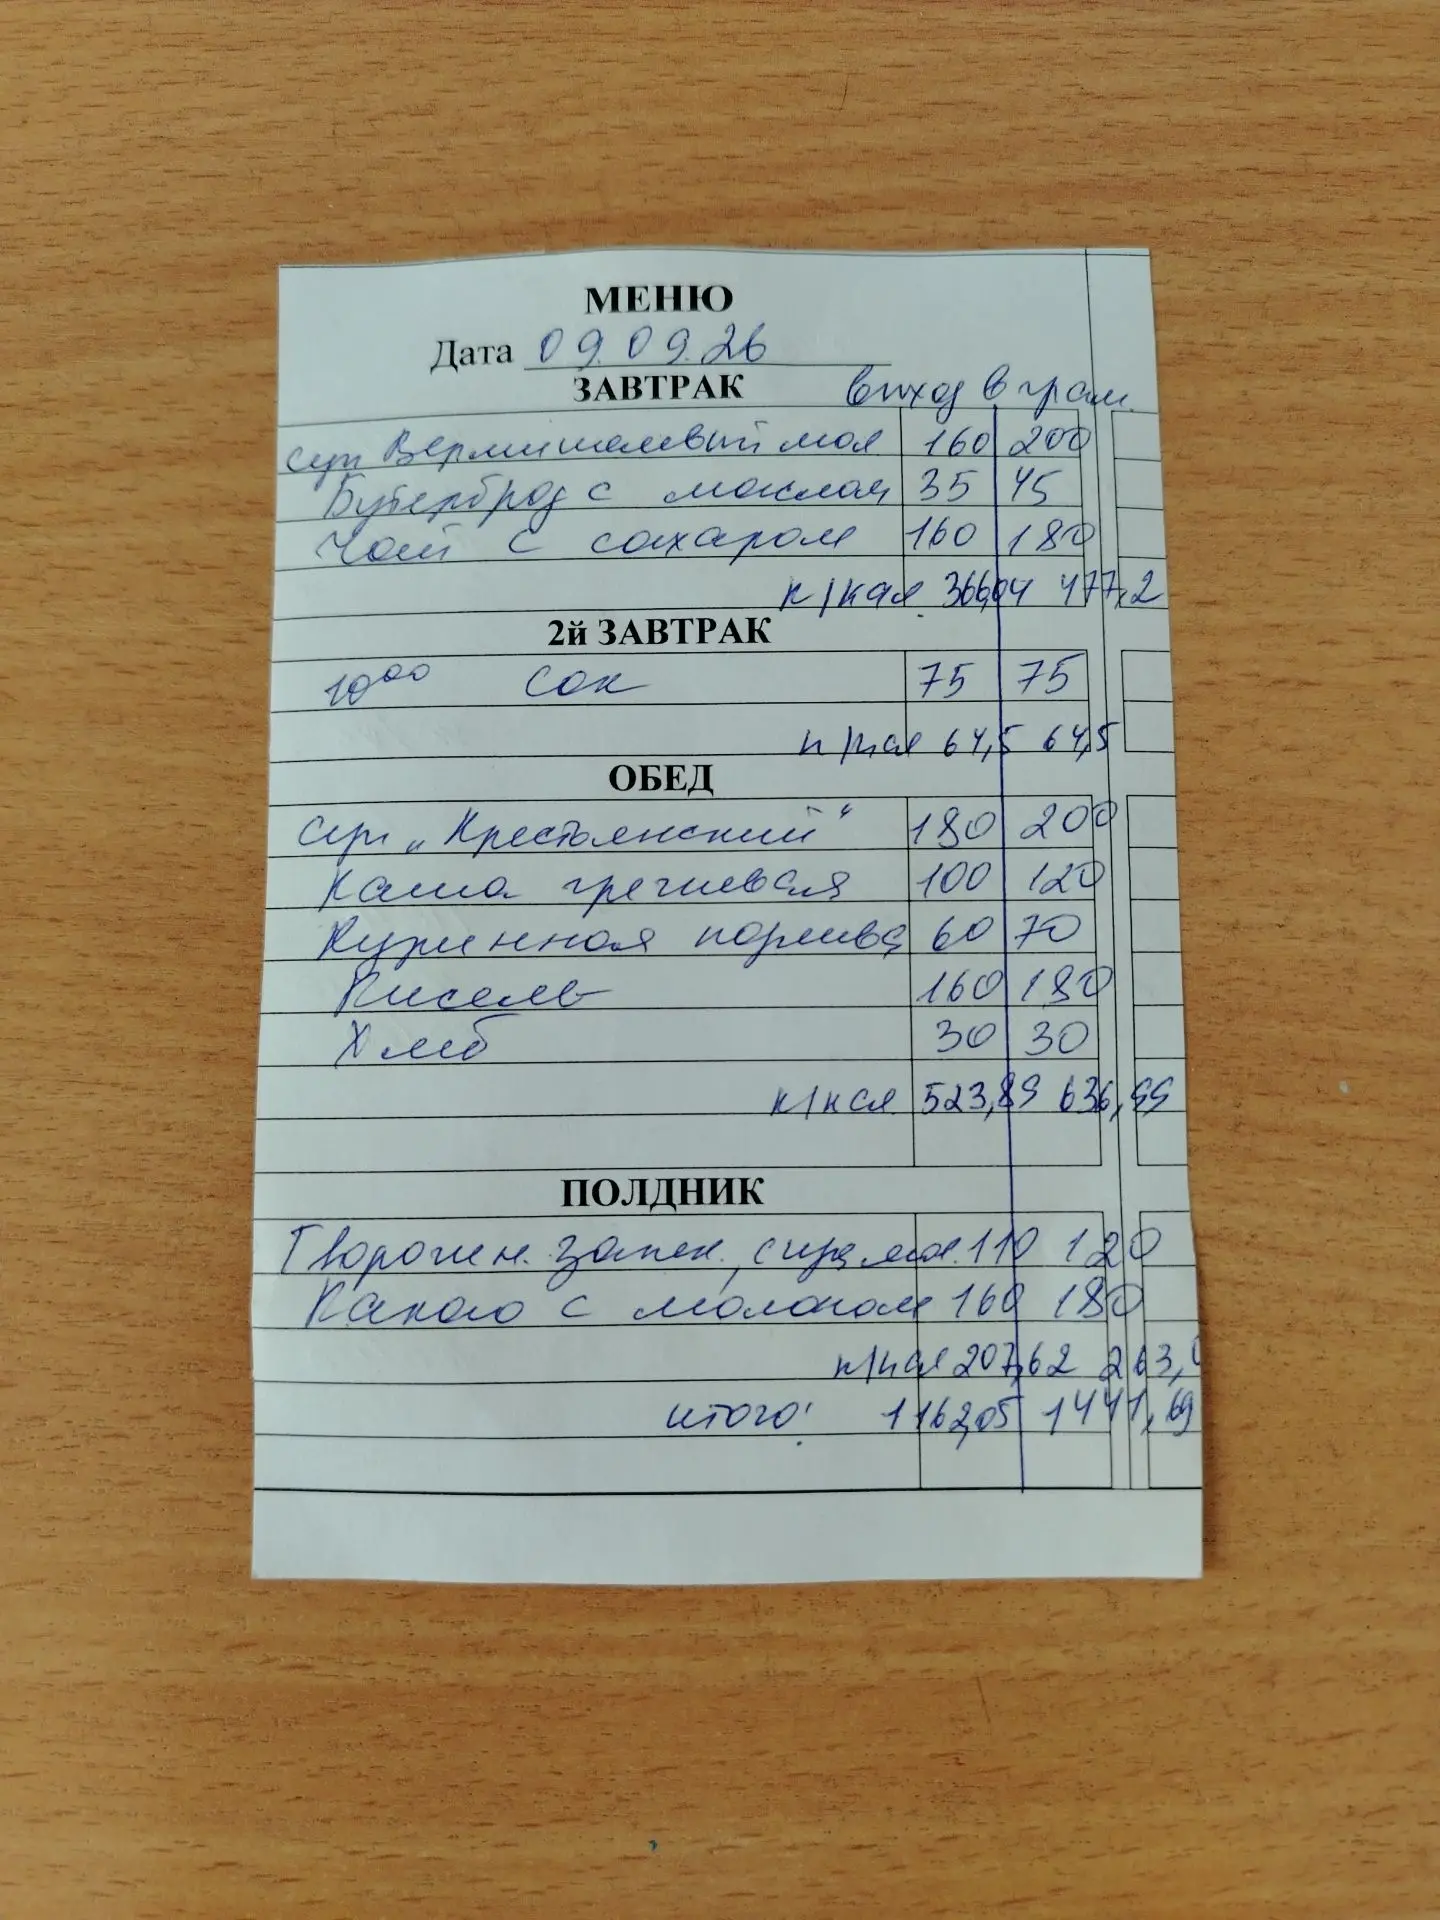 МЕНЮ
Дата 09.09.26
ЗАВТРАК выход в грам.
суп Вермишелевый мол 160 200
Бутерброд с маслом 35 45
Чай с сахаром 160 180
к/кал 366,04 477,2
2й ЗАВТРАК
10⁰⁰ сок 75 75
к/кал 64,5 64,5
ОБЕД
суп „Крестьянский“ 180 200
Каша гречневая 100 120
Куриная 60 70
Кисель 160 180
Хлеб 30 30
к/кал 523,89 636,99
ПОЛДНИК
Творожн. запек., сгущ мол. 110 120
Какао с молоком 160 180
к/кал 207,62 263,0
итого: 1162,05 1441,69